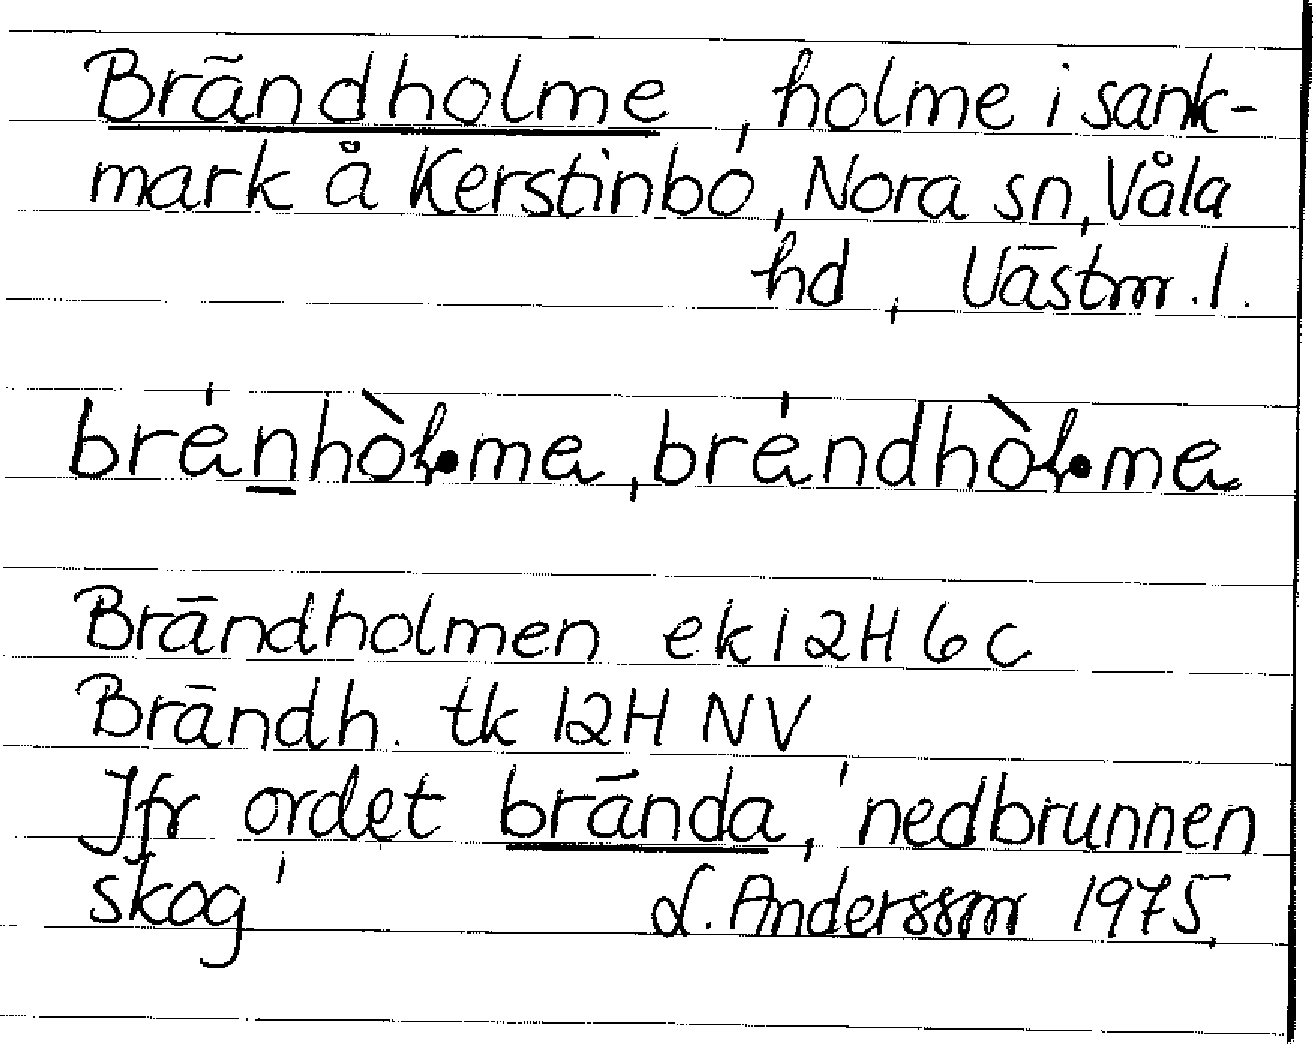 Brändholme, holme i sank-
mark å Kerstinbo, Nora sn, Våla
hd, Västm.l.
brénhòl.me, bréndhòl.me
Brändholmen ek 12H 6c
Brändh. tk 12H NV
Jfr ordet brända, 'nedbrunnen
skog' L. Andersson 1975